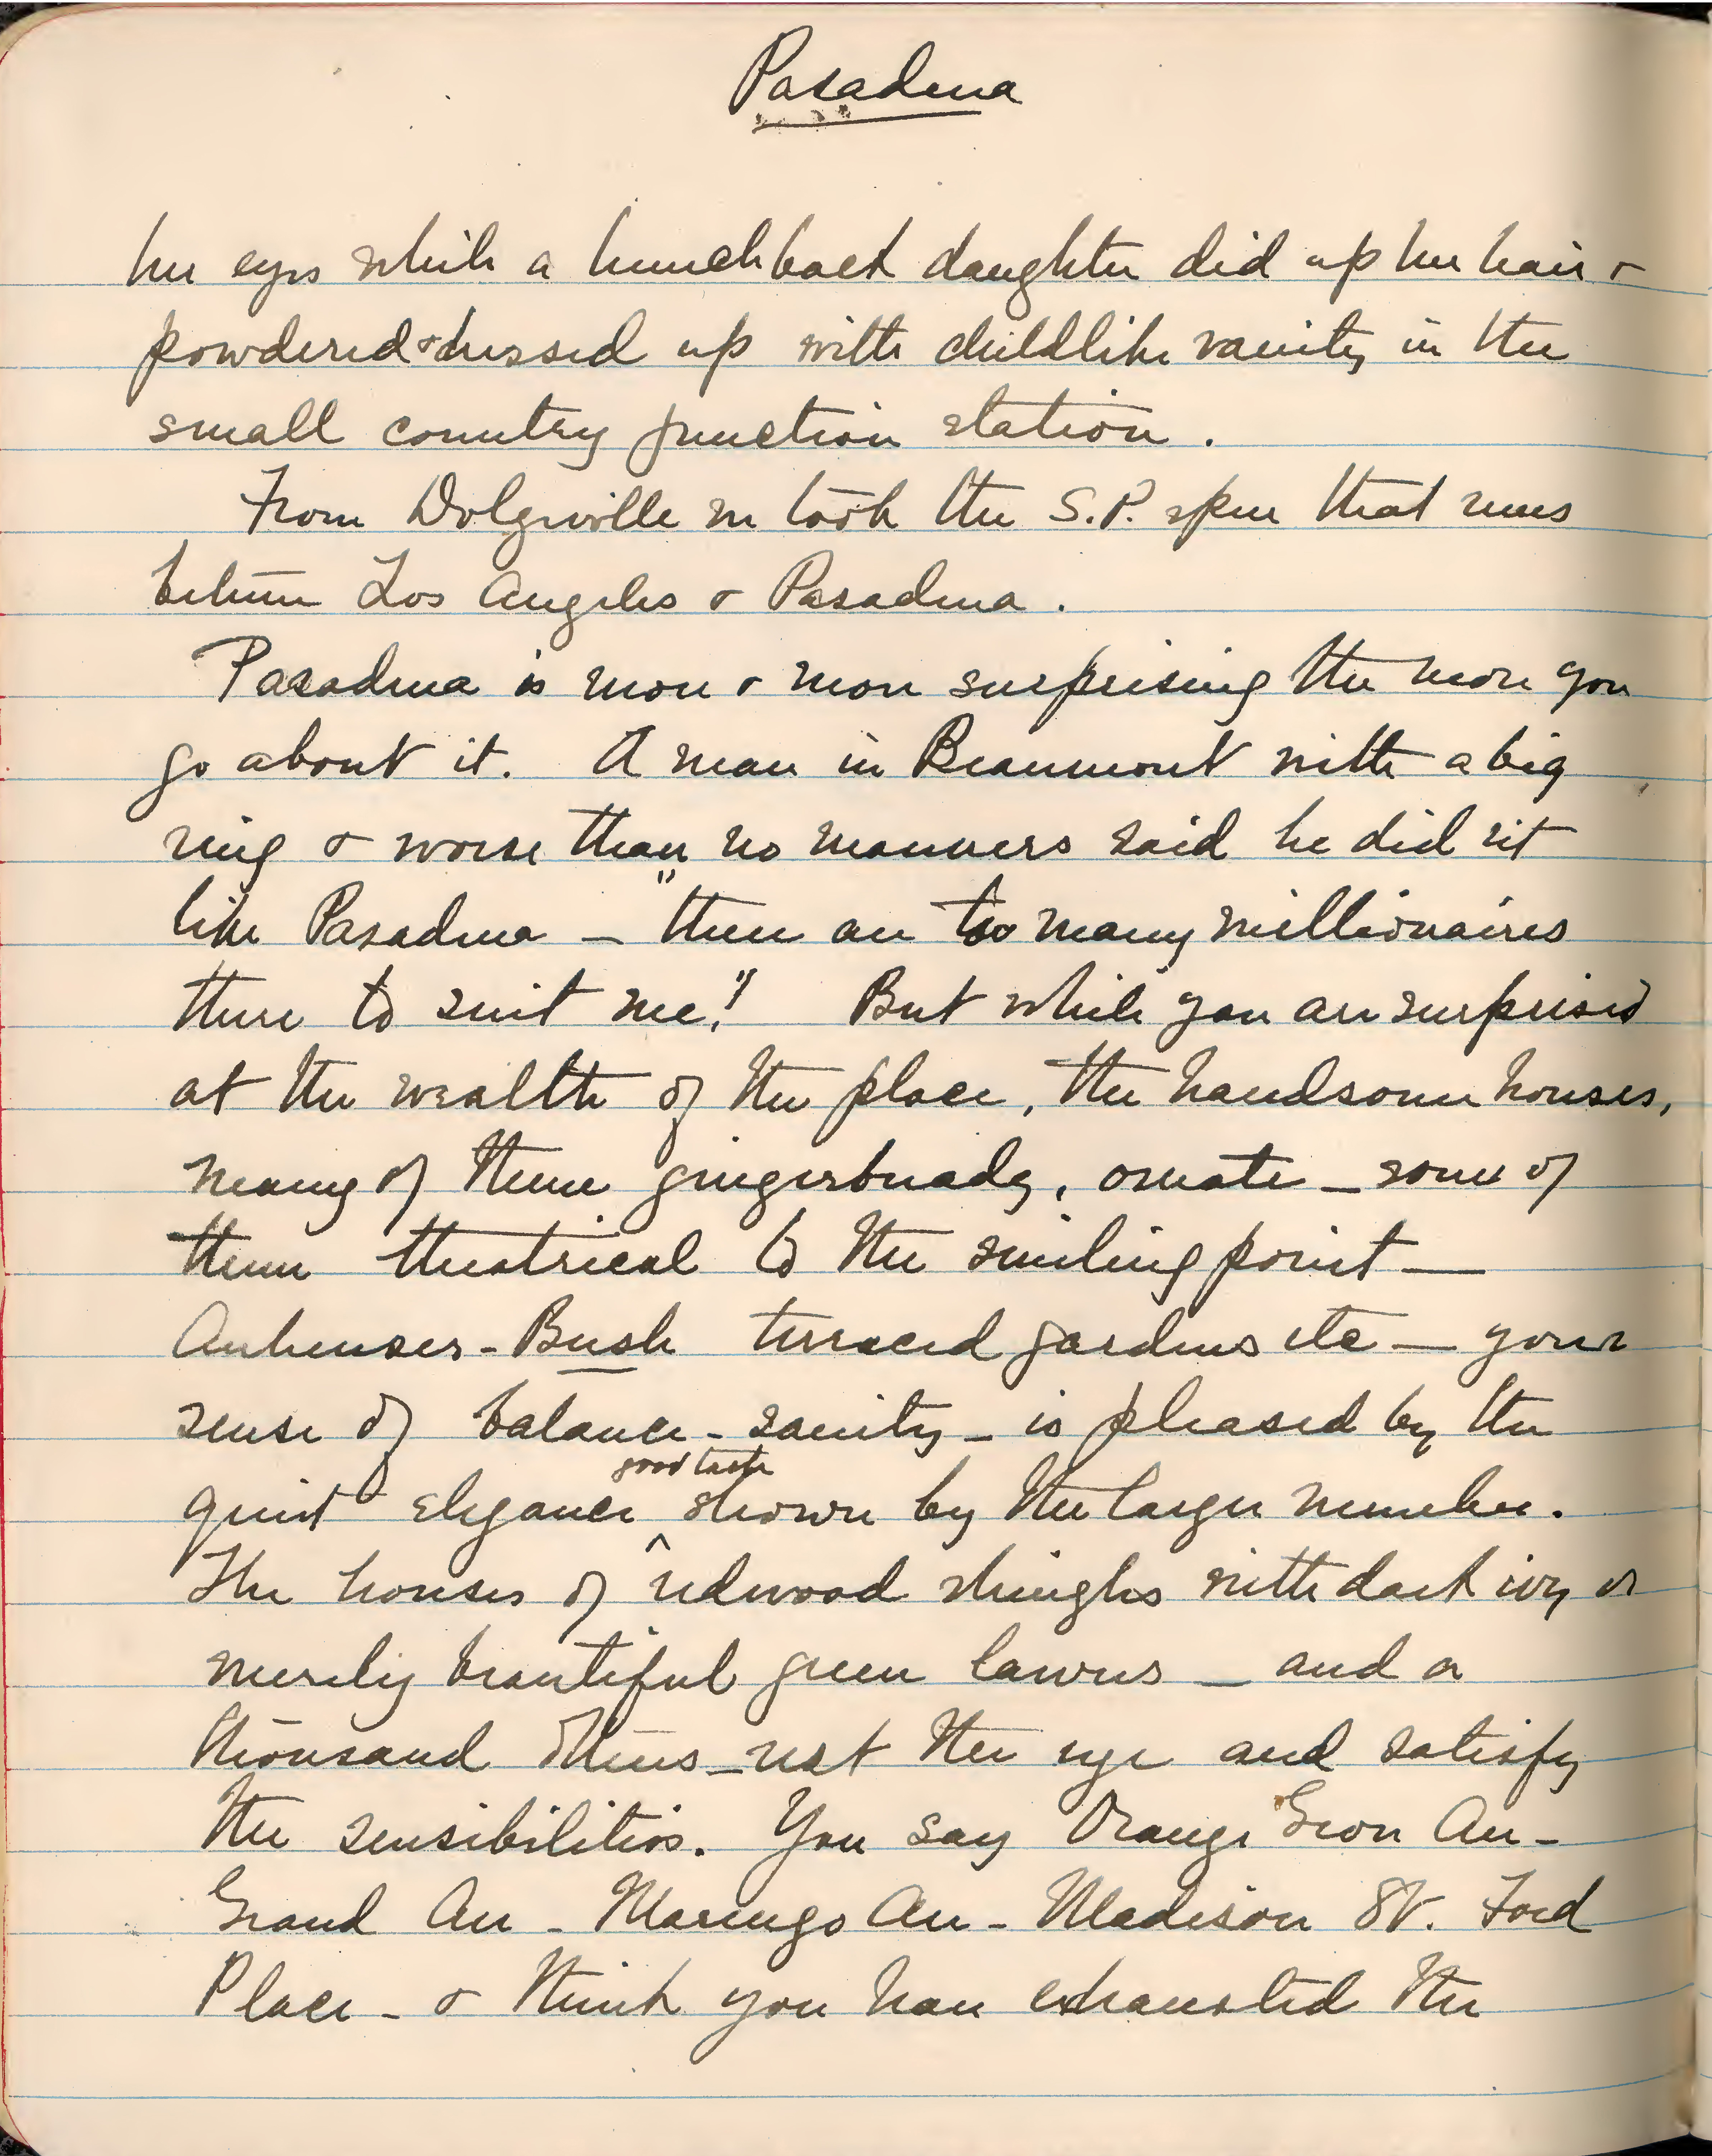 Pasadena
her eyes while a hunchback daughter did up her hair &
powdered & dressed up with childlike vanity in the
small country junction station.
From Dolgeville we took the S.P. spur that runs
between Los Angeles & Pasadena.
Pasadena is more & more surprising the more you
go about it. A man in Beaumont with a big
ring & worse than no manners said he did nit
like Pasadena — "there are too many millionaires
there to suit me!" But while you are surprised
at the wealth of the place, the handsome houses,
many of them gingerbready, ornate — some of
them theatrical to the smiling point —
Anheuser-Bush terraced gardens etc — your
sense of balance - sanity - is pleased by the
good taste
quiet elegance shown by the larger number.
The houses of redwood shingles with dark ivy or
merely beautiful green lawns — and a
thousand others — rest the eye and satisfy
the sensibilities. You say Orange Grove Ave -
Grand Ave - Marengo Ave - Madison St. Ford
Place - & think you have exhausted the